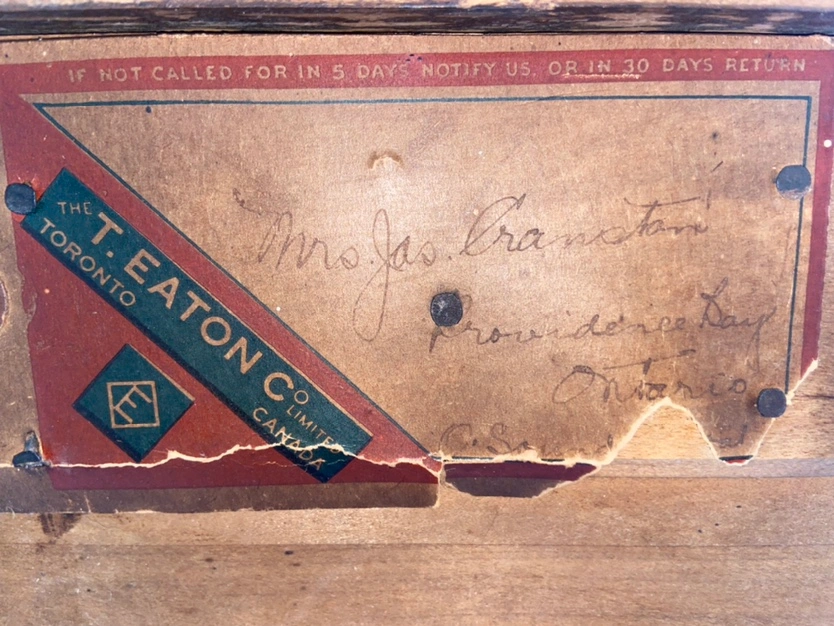 IF NOT CALLED FOR IN 5 DAYS NOTIFY US, OR IN 30 DAYS RETURN
THE
T. EATON CO
LIMITED
TORONTO
CANADA
E
Mrs. Jas. Cranston
Providence Bay
Ontario